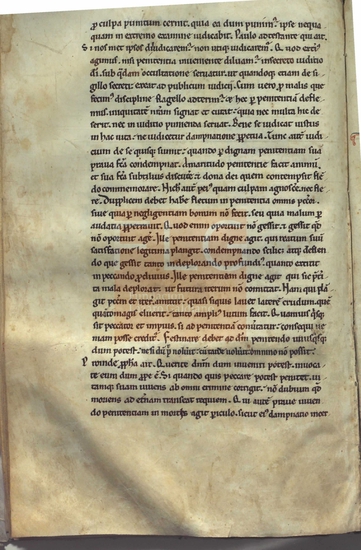 p culpa punitum cernit. quia ea dum punit. ipse nequa
quam in extremo examine iudicabit. Paulo adtestante qui ait.
Si nos met ipsos diiudicarem. non utiq; iudicarem.
agimus. nisi penitentia inueniente diluam. in secreto iudicio
di. sub qdam occultatione seruatur. ut quandoq; etiam de si
gillo secreti exeat ad publicum iudicii. Cum uero p malis que
fecim discipline flagello adterim. et hec p penitentia defle
mus. iniquitate nram signat et curat. quia nec inulta hic de
serit. nec in iudicio punienda seruat. Bene se iudicat iustus
in hac uita. ne iudicetur dampnatione ppetua. Tunc aute iudi
cium de se quisq; sumit. quando p dignam penitentiam sua
praua fca condempnat. Amaritudo penitentie facit animu
et sua fca subtilius discute. et dona dei quem contempsit flen
do commemorare. Nichil aute peius quam culpam agnosce. nec fle
re. Duplicem debet habe fletum in penitentia omnis peccator.
siue quia p negligentiam bonum non fecit. seu quia malum p
audatia ppetrauit. Quod enim oportuit non gessit. et gessit qd
non oportuit age. Ille penitentiam digne agit qui reatum suum
satisfactione legitima plangit. condempnando scilicet atq; deflen
do que gessit tanto in deplorando pfundius. quanto extitit
in peccando pcliuius. Ille penitentiam digne agit qui sic pteri
ta mala deplorat. ut futura iterum non comittat. Nam qui plan
git peccm et iteru admittit. quasi siquis lauet laterem crudum. quem
quanto magis eluerit. tanto amplius lutum facit. Quamuis quisq;
sit peccator et impius. si ad penitentia conuertatur. consequi ue
niam posse creditur. Festinare debet ad dm penitendo unusquisq;
dum potest. ne si dum potest noluerit. cum tarde uoluerit. omnino non possit.
Proinde ppha ait. Querite dnm dum inueniri potest. inuoca
te eum dum ppe e. Si quando quis peccare potest penitet. ui
tamq; suam uiuens ab omni crimine corrigit. non dubium qd
moriens ad eternam transeat requiem. Qui aute praue uiuen
do penitentiam in mortis agit periculo. sicut eius dampnatio incer